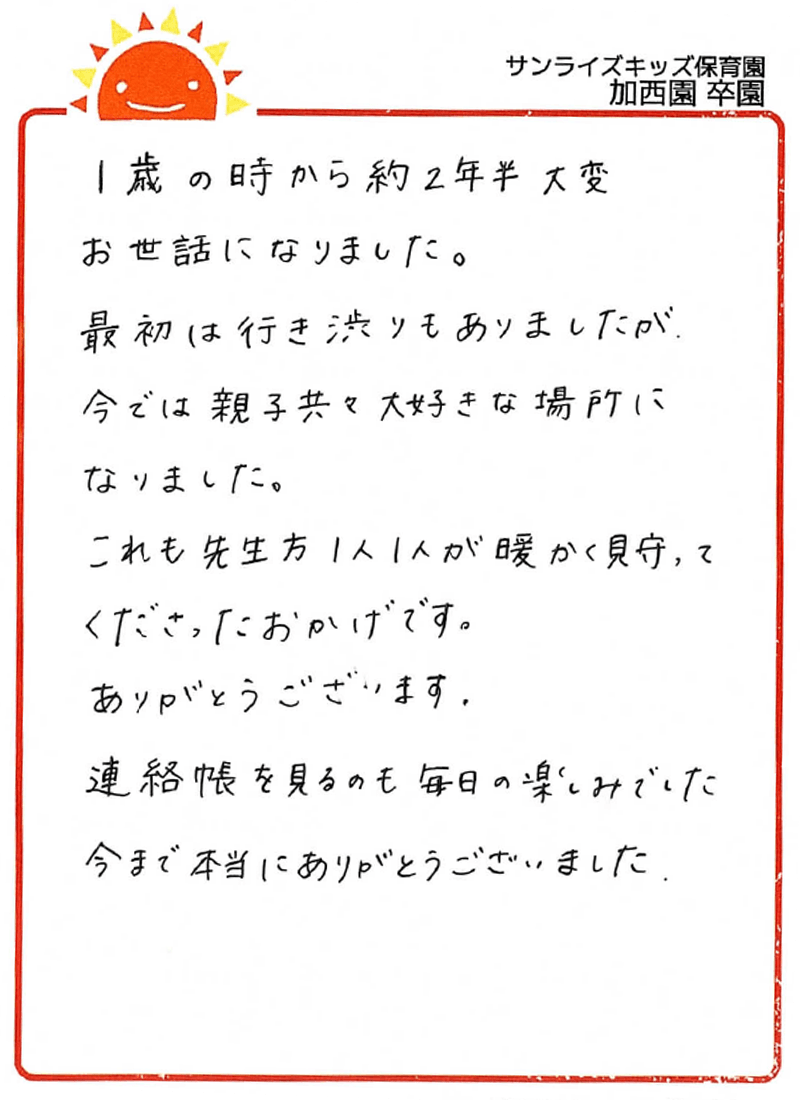 サンライズキッズ保育園
加西園 卒園
1歳の時から約2年半 大変
お世話になりました。
最初は行き渋りもありましたが、
今では親子共々大好きな場所に
なりました。
これも先生方1人1人が暖かく見守って
くださったおかげです。
ありがとうございます。
連絡帳を見るのも毎日の楽しみでした
今まで本当にありがとうございました.